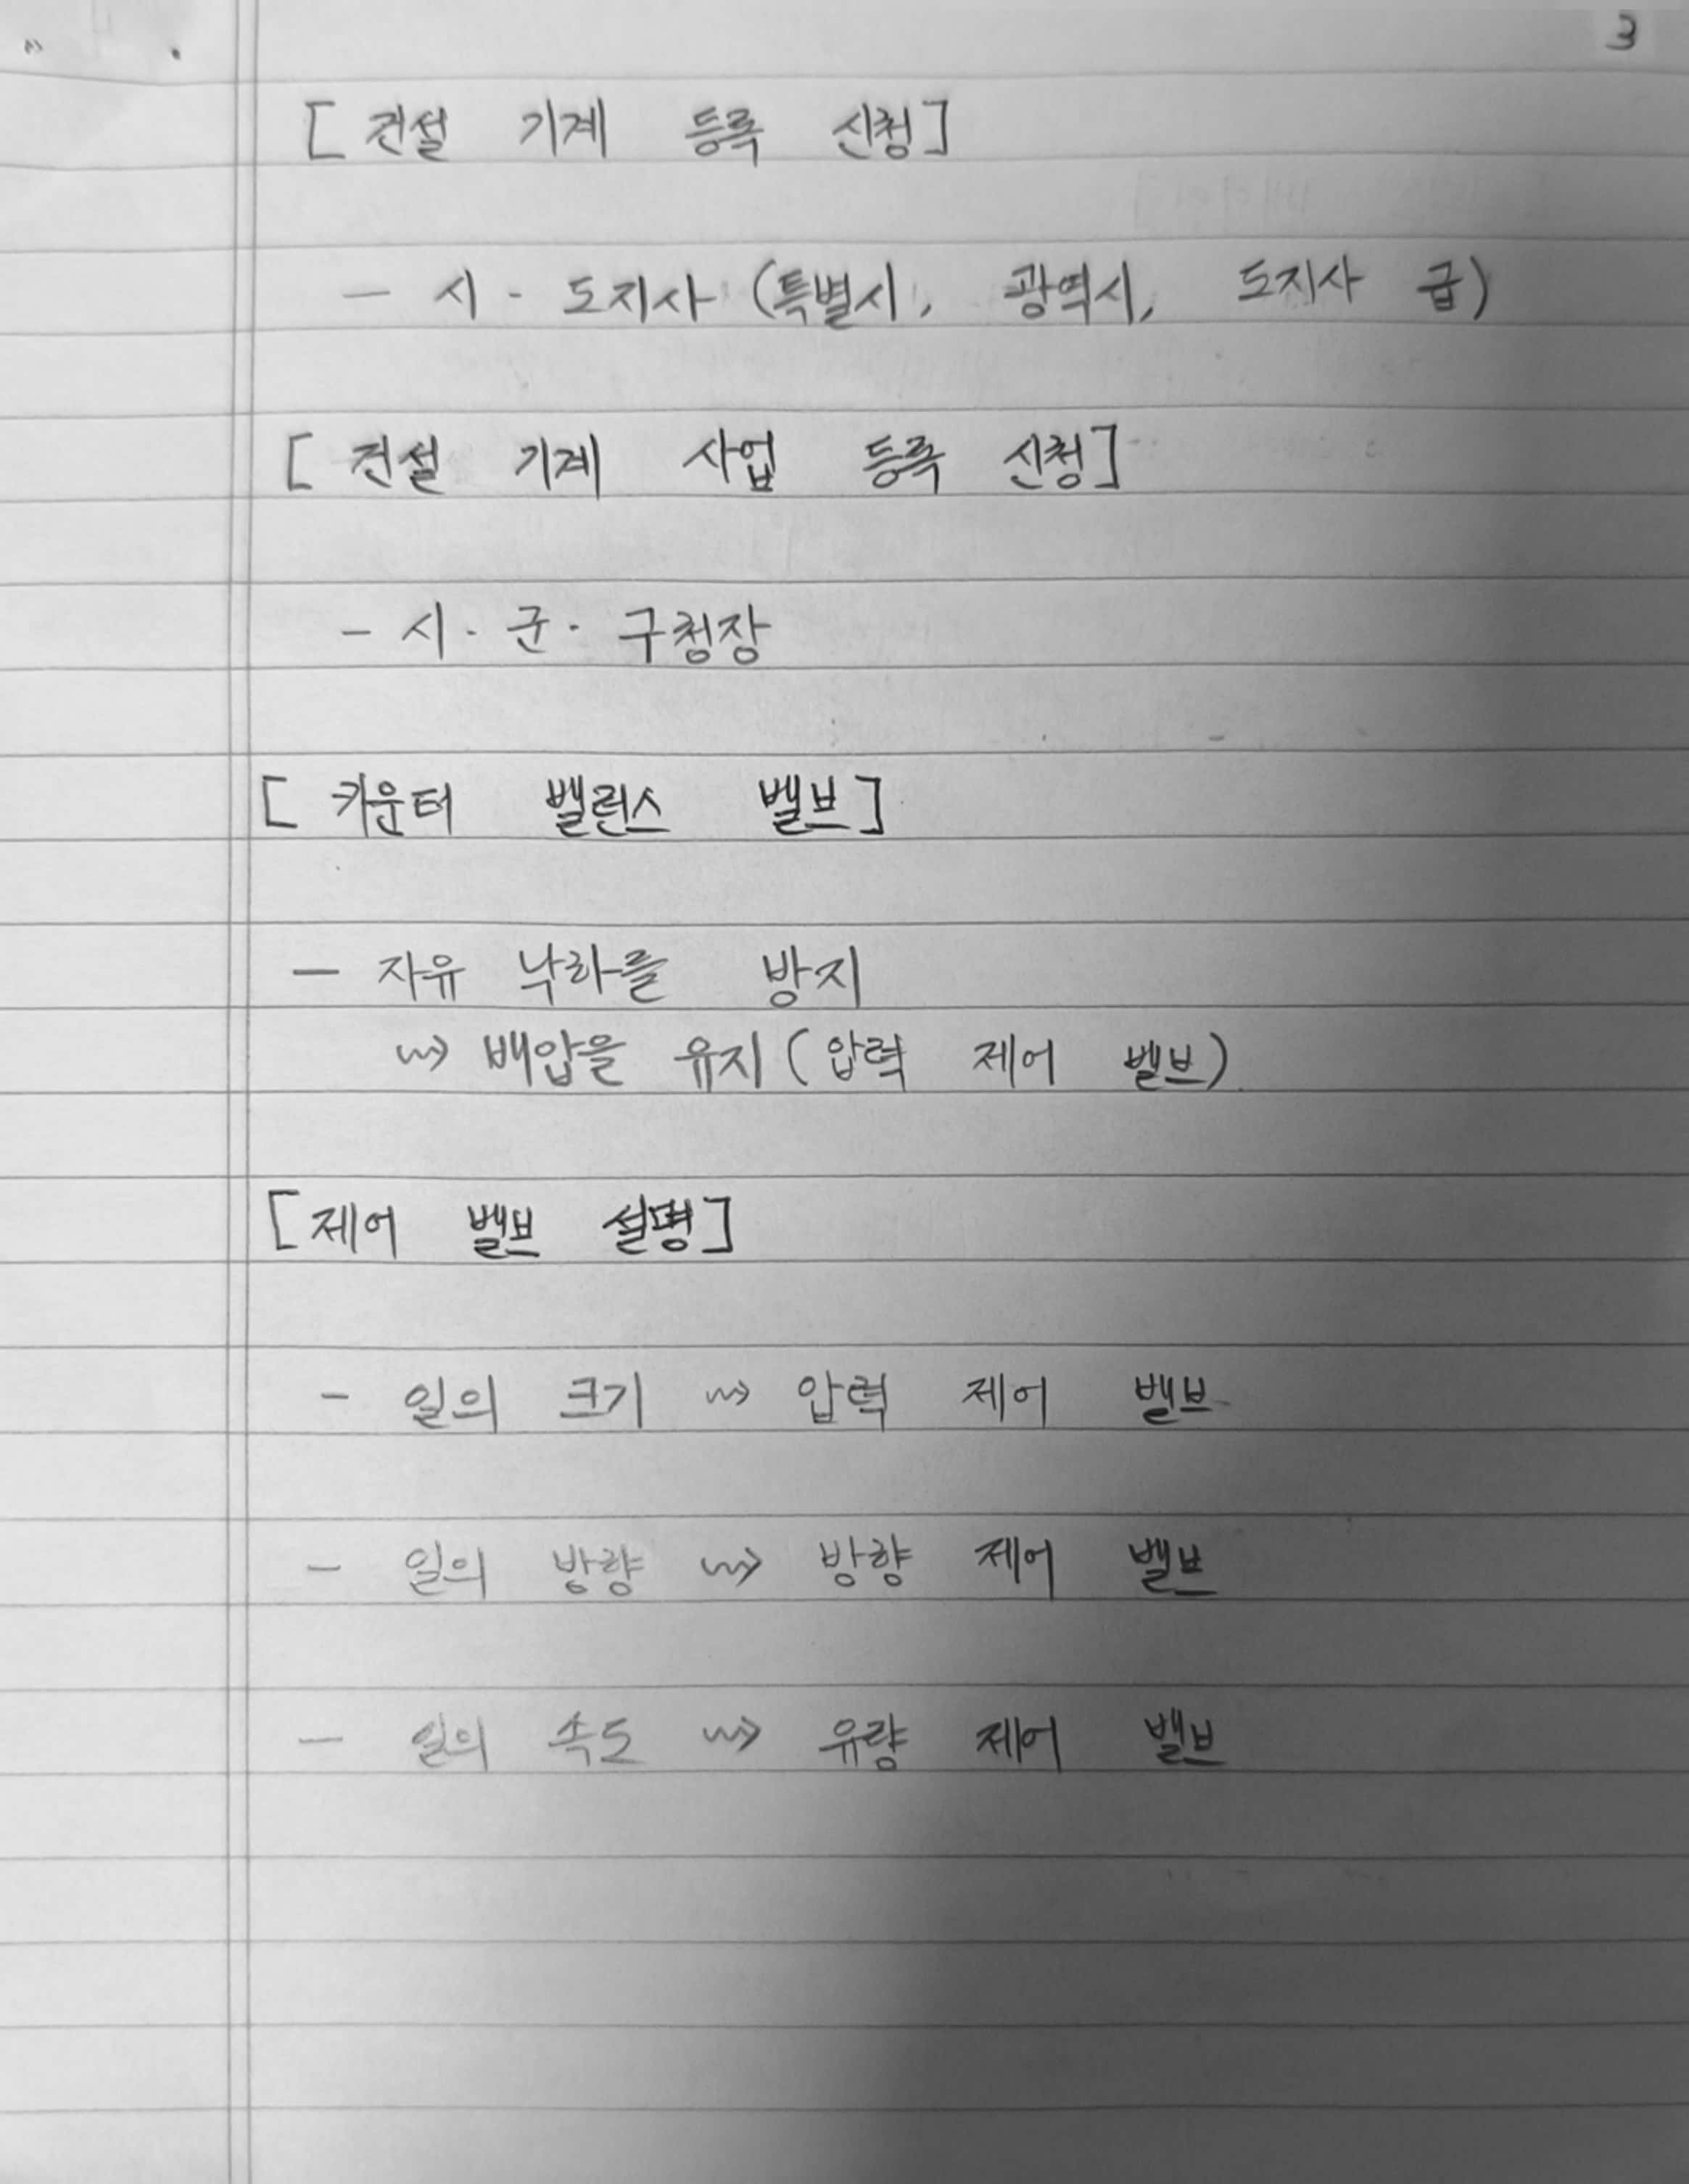 3
[건설 기계 등록 신청]
- 시·도지사 (특별시, 광역시, 도지사 급)
[건설 기계 사업 등록 신청]
- 시·군·구청장
[카운터 밸런스 밸브]
- 자유 낙하를 방지
↝ 배압을 유지 (압력 제어 밸브)
[제어 밸브 설명]
- 일의 크기 ↝ 압력 제어 밸브
- 일의 방향 ↝ 방향 제어 밸브
- 일의 속도 ↝ 유량 제어 밸브